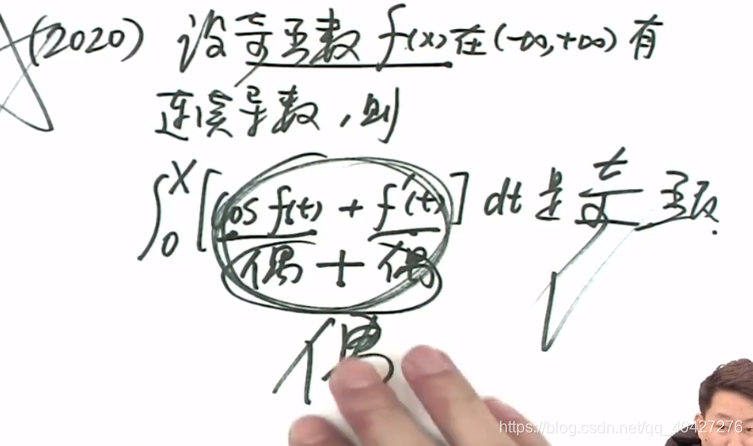 (2020) 设奇函数 f(x) 在 (-∞,+∞) 有
连续导数,则
∫₀ˣ [cos f(t) + f'(t)] dt 是奇函数.
偶 + 偶
偶
https://blog.csdn.net/qq_40427276